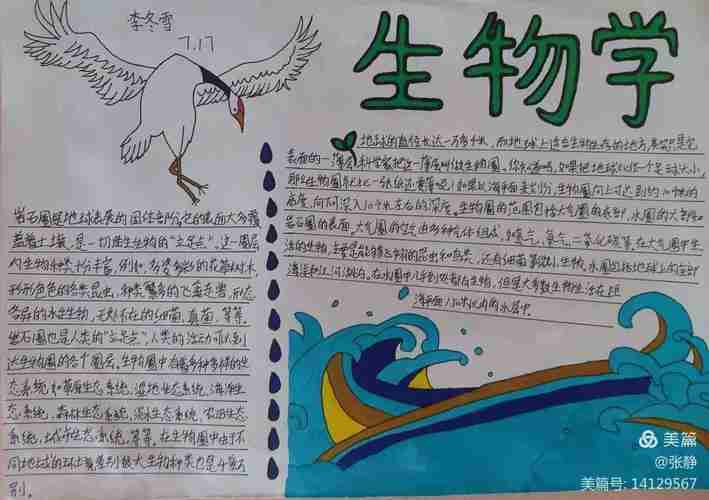 李冬雪
7.17
生物学
地球的直径长达一万多千米,而地球上适合生物生存的地方,其实只是它
表面的一薄层,科学家把这一薄层叫做生物圈。你知道吗,如果把地球比作一个足球大小,
那么生物圈就比一张纸还要薄呢!如果以海平面来划分,生物圈向上可达到约10千米的
高度,向下可深入10千米左右的深度。生物圈的范围包括大气圈的底部,水圈的大部和
岩石圈的表面。大气圈的空气由多种气体组成,如氮气,氧气,二氧化碳等,在大气圈中生
活的生物,主要是能够飞翔的昆虫和鸟类,还有细菌等微小生物。水圈包括地球上的全部
海洋和江河湖泊。在水圈中几乎到处都有生物,但是大多数生物生活在距
海平面150米以内的水层中。
岩石圈是地球表层的固体部分。它的表面大多覆
盖着土壤,是一切陆生生物的“立足点”,这一圈层
内生物种类十分丰富,例如,多姿多彩的花草树木,
形形色色的各类昆虫,种类繁多的飞禽走兽,形态
各异的水生生物,无处不在的细菌,真菌,等等。
岩石圈也是人类的“立足点”,人类的活动可以到
达生物圈的各个圈层。生物圈中有着多种多样的生
态系统,如草原生态系统,湿地生态系统,海洋生
态系统,森林生态系统,淡水生态系统,农田生态
系统,城市生态系统,等等。在生物圈中由于不
同地域的环境差别很大生物种类也是千差万
别。
美篇
@张静
美篇号: 14129567